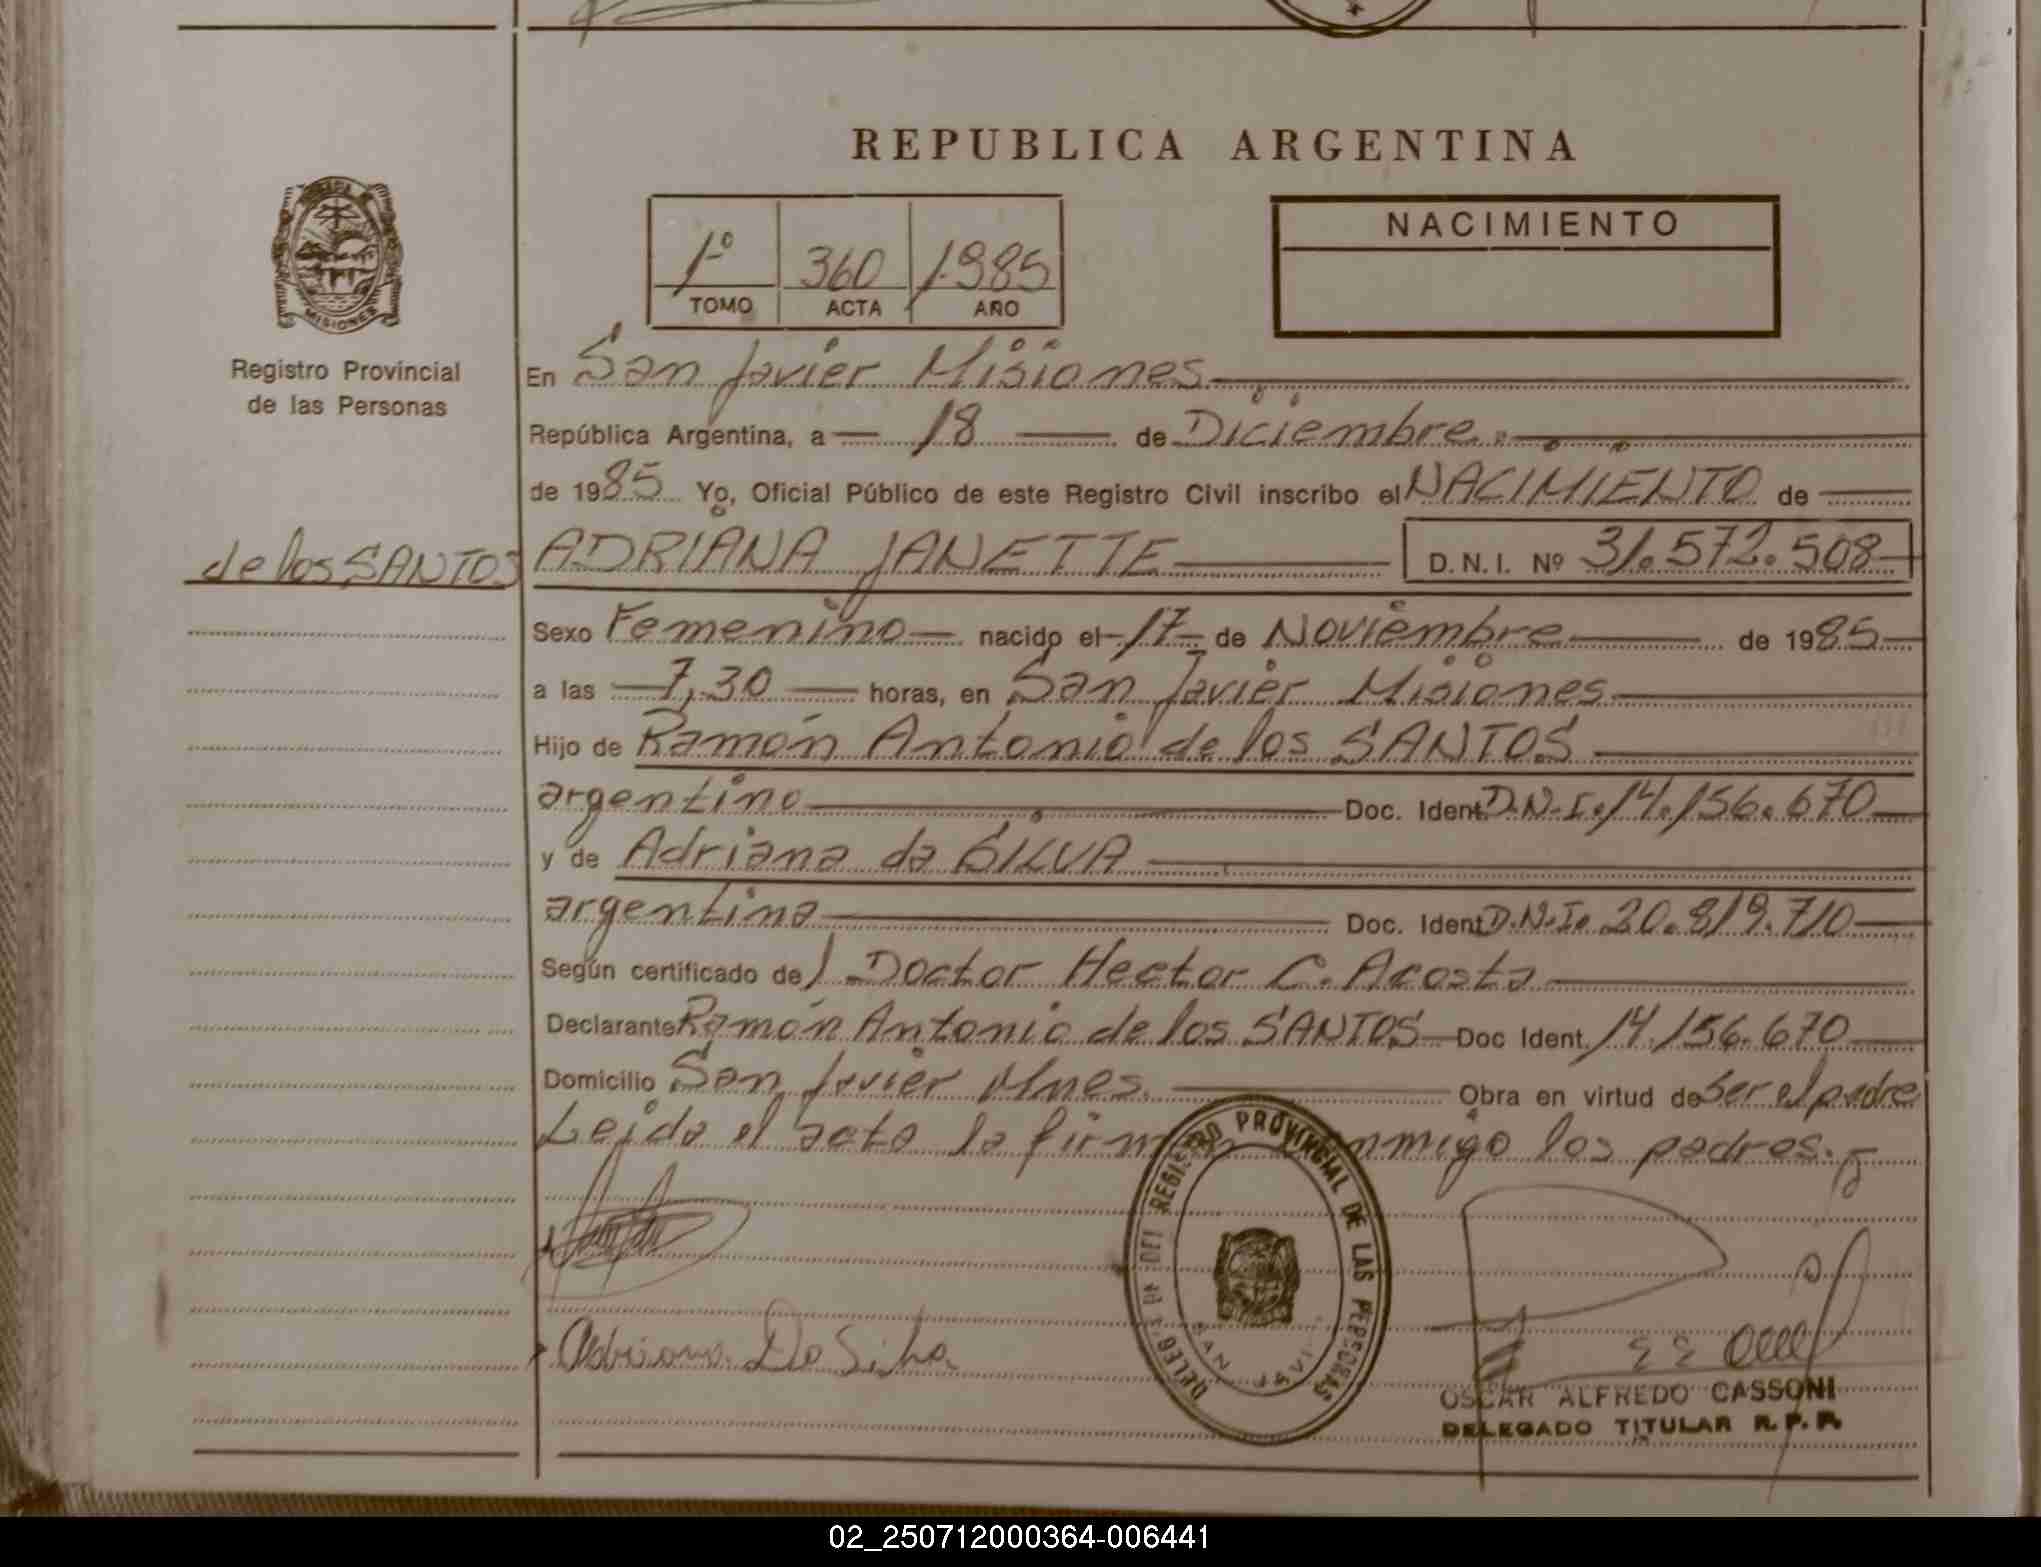 REPUBLICA ARGENTINA
MISIONES
Registro Provincial
de las Personas
1º 360 1985
TOMO ACTA AÑO
NACIMIENTO
En San Javier Misiones
República Argentina, a 18 de Diciembre
de 1985 Yo, Oficial Público de este Registro Civil inscribo el NACIMIENTO de
de los SANTOS ADRIANA JANETTE D.N.I. Nº 31.572.508
Sexo Femenino nacido el 17 de Noviembre de 1985
a las 7,30 horas, en San Javier Misiones
Hijo de Ramón Antonio de los SANTOS
argentino Doc. Ident D.N.I. 14.156.670
y de Adriana da SILVA
argentina Doc. Ident D.N.I. 20.819.710
Según certificado del Doctor Hector C. Acosta
Declarante Ramón Antonio de los SANTOS Doc Ident. 14.156.670
Domicilio San Javier Mnes. Obra en virtud de ser el padre
Leida el acta la conmigo los padres.
REGISTRO PROVINCIAL DE LAS PERSONAS
SAN
Adriana Da Silva
OSCAR ALFREDO CASSONI
DELEGADO TITULAR R.P.P.
02_250712000364-006441